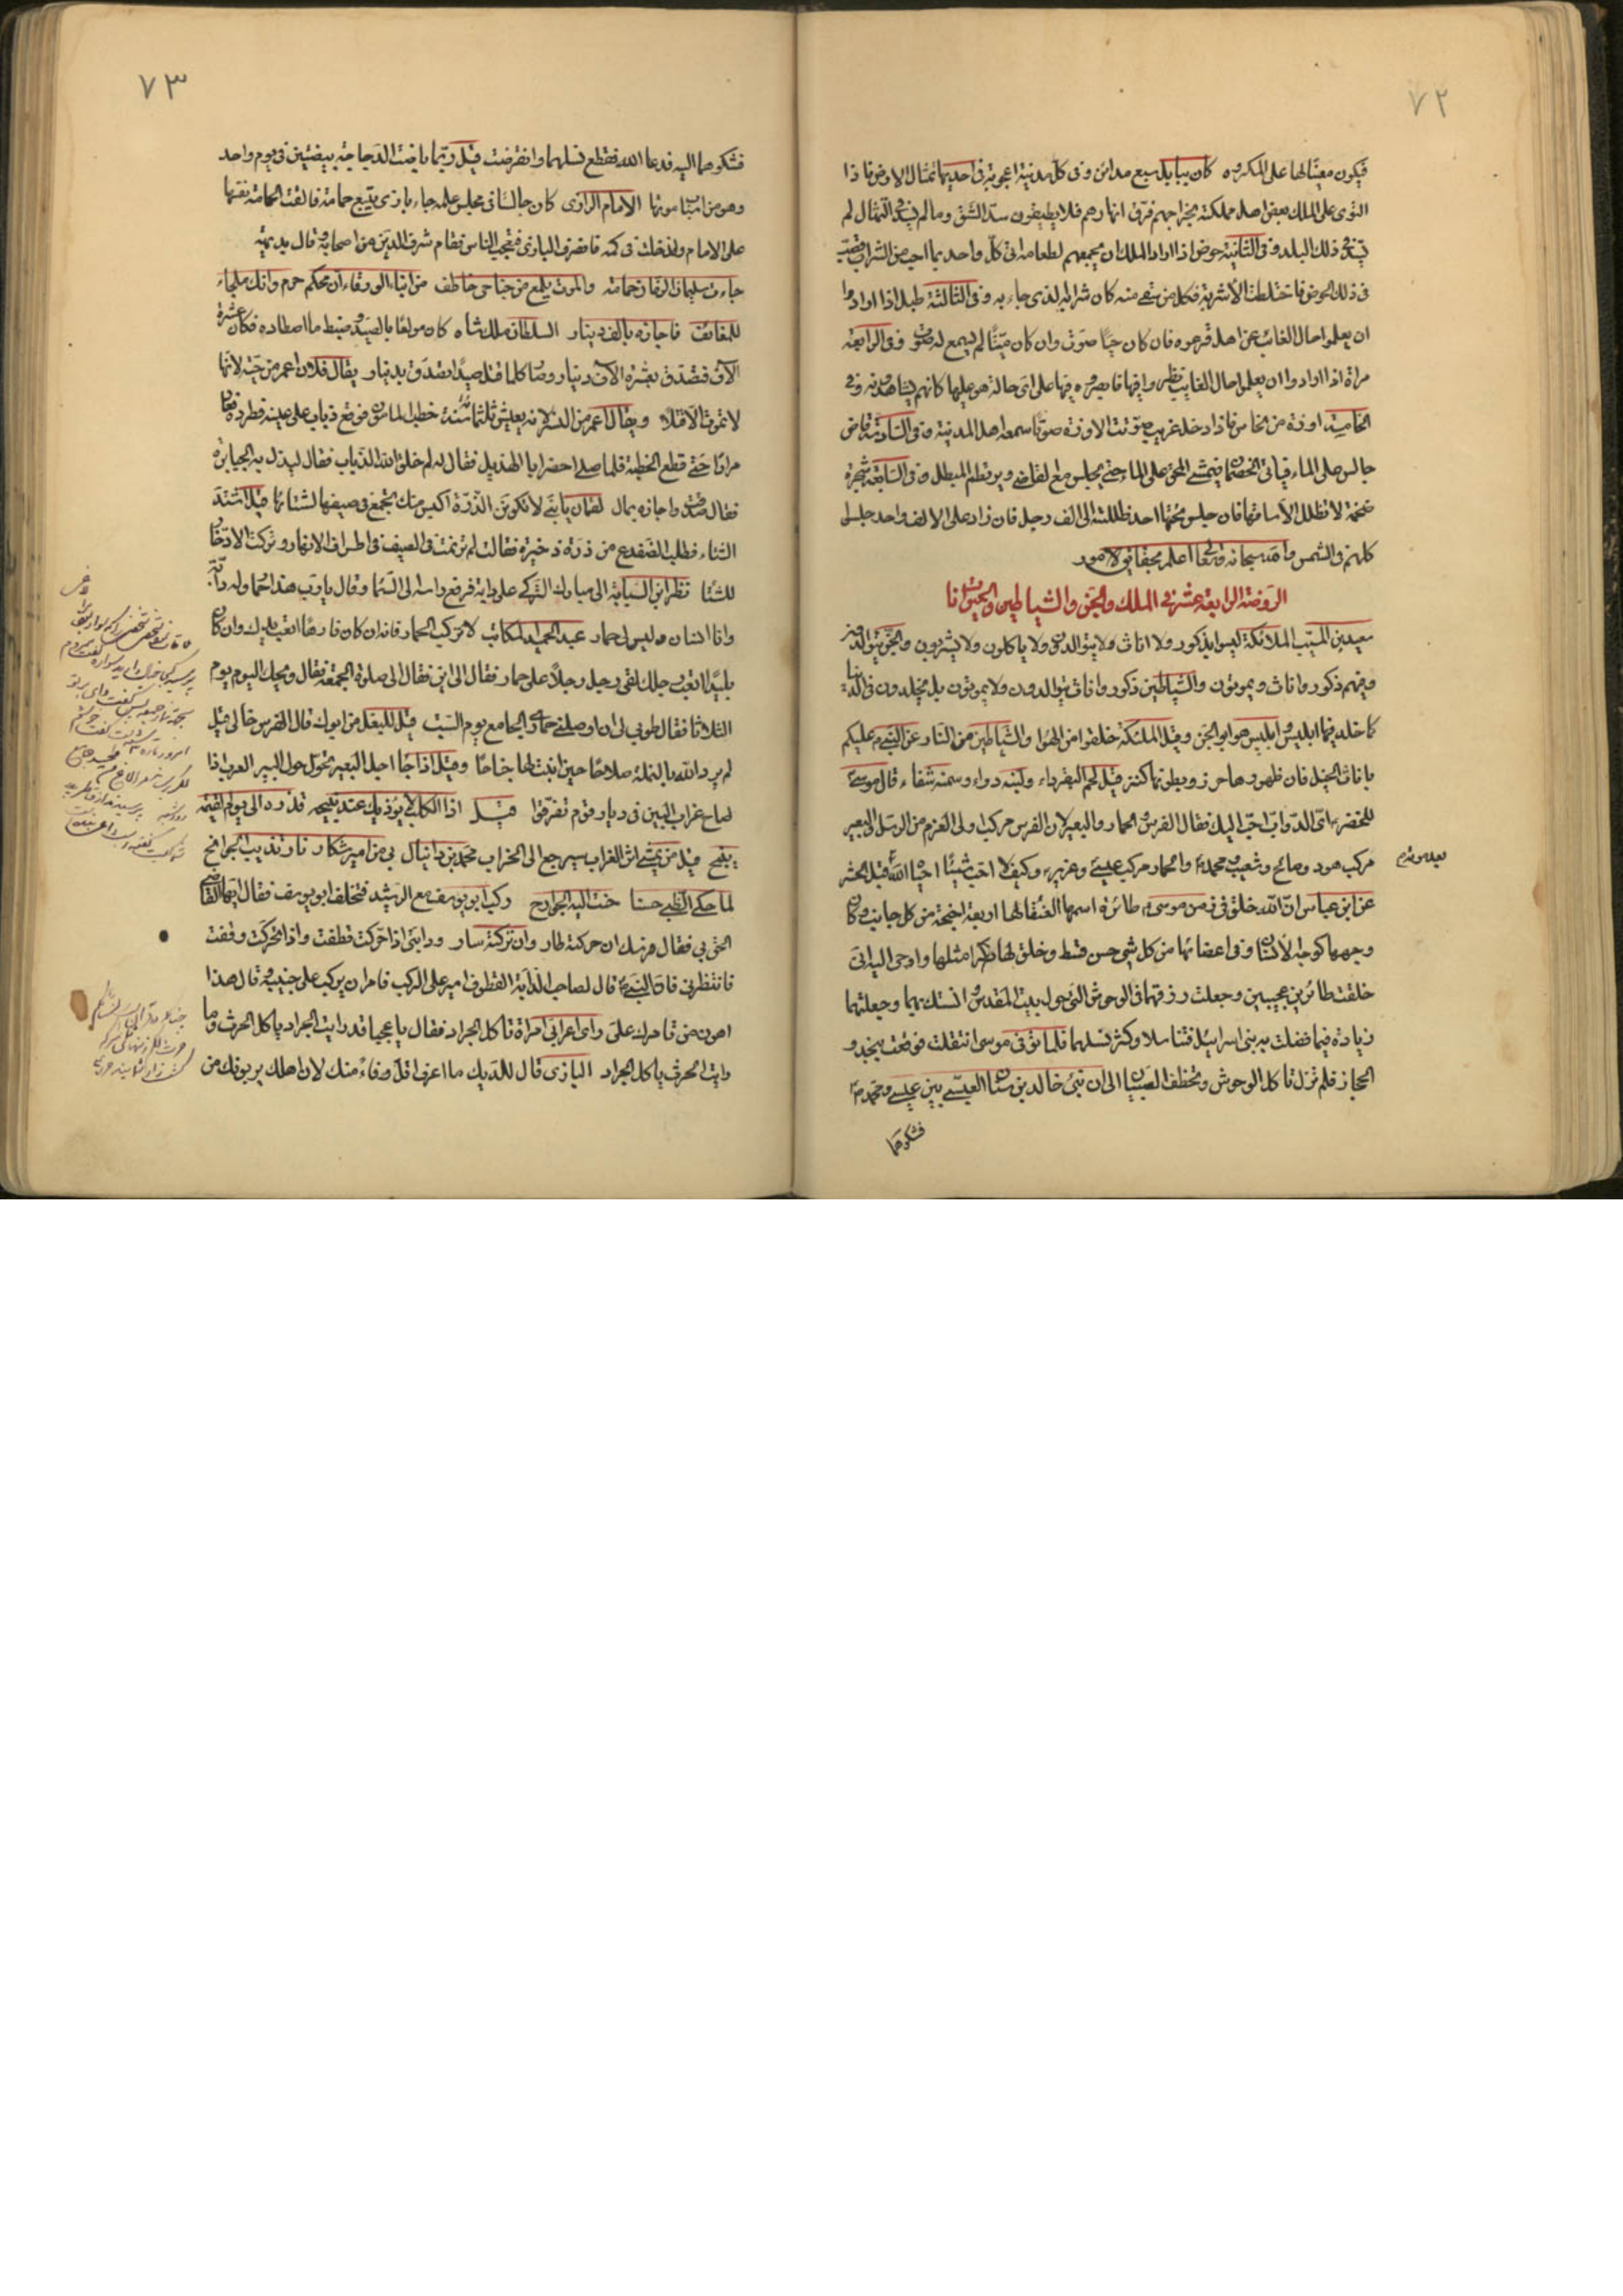 ٧٢
فيكون معينا لها على المكروه كان ببابل سبع مدائن وفى كل مدينة اعجوبة فى احديها تمثال الارض فاذا
التوى على الملك بعض اهل مملكته بخراجهم فرق انهارهم فلا يطيقون سد الشق وما لم يسد فى التمثال لم
يسد فى ذلك البلد وفى الثانية حوض اذا اراد الملك ان يجمعهم لطعامه اتى كل واحد بما احب من الشراب فصب
فى ذلك الحوض فاختلطت الاشربة فكل من سقى منه كان شرابه الذى جاء به وفى الثالثة طبل اذا ارادوا
ان يعلموا حال الغائب عن اهله قرعوه فان كان حيّا صوّت وان كان ميّتا لم يسمع له صوت وفى الرابعة
مرآة اذا ارادوا ان يعلموا حال الغايب نظروا فيها فابصروه فيها على اى حالة هو عليها كانهم يشاهدونه وفى
الخامسة اوزة من نحاس فاذا دخل غريب صوّتت الاوزة صوتا سمعه اهل المدينة وفى السادسة قاض
جالس على الماء فياتى الخصمان فيمشى المحق على الماء حتى يجلس مع القاضى ويرتطم المبطل وفى السابعة شجرة
ضخمة لا تظلل الا ساقها فان جلس تحتها احد ظللته الى الف رجل فان زاد على الالف واحد جلسوا
كلهم فى الشمس والله سبحانه وتعالى اعلم بحقايق الامور
الروضة الرابعة عشر فى الملك والجن والشياطين والحيوانات
سعيد بن المسيب الملائكة ليسوا بذكور ولا اناث ولا يتوالدون ولا ياكلون ولا يشربون والجن يتوالدون
وفيهم ذكور واناث ويموتون والشياطين ذكور واناث يتوالدون ولا يموتون بل يخلدون فى الدنيا
كما خلد فيها ابليس وابليس هو ابو الجن وقيل الملئكة خلقوا من الهوا والشياطين من النار عن النبى عليكم
باناث الخيل فان ظهورها حرز وبطونها كنز قيل لحم البقر داء ولبنه دواء وسمنه شفاء قال موسى
للخضر اى الدواب احب اليك فقال الفرس والحمار والبعير لان الفرس مركب اولى العزم من الرسل والبعير
مركب هود وصالح وشعيب ومحمد والحمار مركب عيسى وعزير وكيف لا احب شيئا احياه الله قبل الحشر
عن ابن عباس ان الله خلق فى زمن موسى طائرة اسمها العنقا لها اربعة اجنحة من كل جانب وكان
وجهها كوجه الانسان وفى اعضائها من كل شى حسن قسط وخلق لها ذكرا مثلها واوحى اليه انى
خلقت طائرين عجيبين وجعلت رزقهما فى الوحوش التى حول بيت المقدس وانستك بهما وجعلتهما
زيادة فيما فضلت به بنى اسرائيل فتناسلا وكثر نسلهما فلما توفى موسى انتقلت فوقعت بنجد و
الحجاز فلم تزل تاكل الوحوش وتخطف الصبيان الى ان نبئ خالد بن سنان العبسى بين عيسى ومحمد
فشكوهما
٧٣
فشكوهما اليه فدعا الله فقطع نسلهما وانقرضت قيل ربما باضت الدجاجة بيضتين فى يوم واحد
وهو من اسباب موتها الامام الرازى كان جالسا فى مجلس علمه جاء بازى يتبع حمامة فالقت الحمامة نفسها
على الامام ودخلت فى كمه فانصرف البازى فتعجب الناس فقام شرف الدين من اصحابه وقال بديهة
جاءت سليمان الزمان حمامة والموت يلمع من جناحى خاطف من انباء الورقاء ان محلكم حرم وانك ملجاء
للخائف فاجازه بالف دينار السلطان ملكشاه كان مولعا بالصيد وضبط ما اصطاده فكان عشرة
الآف فتصدق بعشرة الآف دينار وصار كلما قتل صيدا تصدق بدينار يقال فلان اعمر من حية لانها
لا تموت الا قتلا ويقال اعمر من النسر لانه يعيش ثلثمائة سنة خطب المامون فوقع ذباب على عينه فطرده فعاد
مرارا حتى قطع الخطبة فلما صلى احضر ابا الهذيل فقال له لم خلق الله الذباب فقال ليذل به الجبابرة
فقال صدقت واجازه بمال لقمان يا بنى لا تكونن الذرة اكيس منك تجمع فى صيفها لشتائها قيل اشتد
الشتاء فطلب الضفدع من ذرة ذخيرة فقالت لم ترنمت فى الصيف فى اطراف الانهار وتركت الادخار
للشتا نظر ابن السيابة الى مبارك التركى على دابة فرفع راسه الى السما وقال يا رب هذا حمار وله دابة
وانا انسان وليس لى حمار عبد الحميد الكاتب لا تركب الحمار فانه ان كان فارها اتعب يدك وان كان
بليدا اتعب رجلك لقى رجل رجلا على حمار فقال الى اين فقال الى صلوة الجمعة فقال ويحك اليوم يوم
الثلاثا فقال طوبى لى ان اوصلنى حمارى الجامع يوم السبت قيل للبغل من ابوك قال الفرس خالى قيل
لم يرد الله بالنملة صلاحا حين انبت لها جناحا وقيل اذا جا اجل البعير تحول حول البير العرب اذا
صاح غراب البين فى ديار قوم تفرقوا قيل اذا الكلب لا يؤذيك عند نبيحه فذره الى يوم القيمة
ينبح قيل من يمشى اثر الغراب سيرجع الى الخراب محمد بن دانيال بى من امير شكار نار تذيب الجوانح
لما حكى الظبى حسنا حنت اليه الجوارح ركب ابو يوسف مع الرشيد فتخلف ابو يوسف فقال ايها القاضى
الحق بى فقال فرسك ان حركته طار وان تركته سار ودابتى اذا حركت قطفت واذا تحركت وقفت
فانتظرنى فان النبى قال لصاحب الدابة القطوف امير على الركب فامر ان يركب على جنيبة وقال هذا
اهون من تامرك على راى اعرابى امراة تاكل الجراد فقال يا عجبا قد رايت الجراد ياكل الحرث وما
رايت الحرث ياكل الجراد البازى قال للديك ما اعرف اقل وفاء منك لان اهلك يربونك من